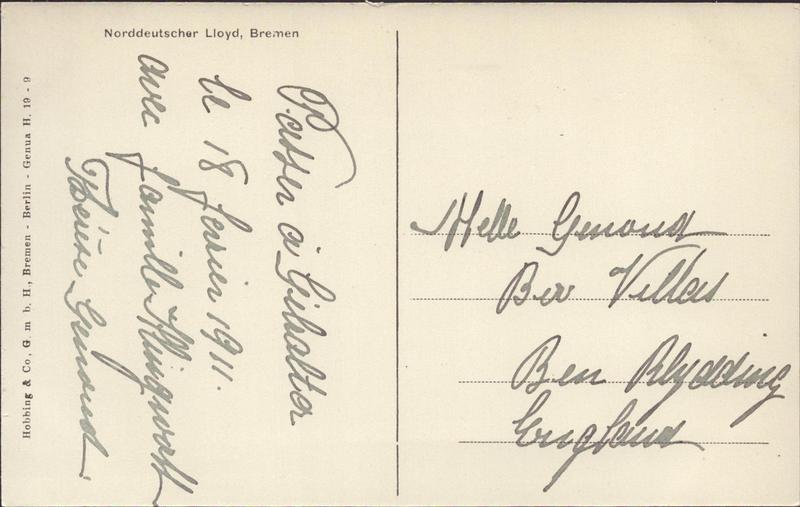 Norddeutscher Lloyd, Bremen
Passer à Gibraltar
le 18 fevrier 1911.
avec famille Klingwort
Thérèse Genoud.
Hobbing & Co, G. m b. H., Bremen - Berlin - Genua H. 19 - 9
Melle Genoud
Ben Villas
Ben Rhydding
England